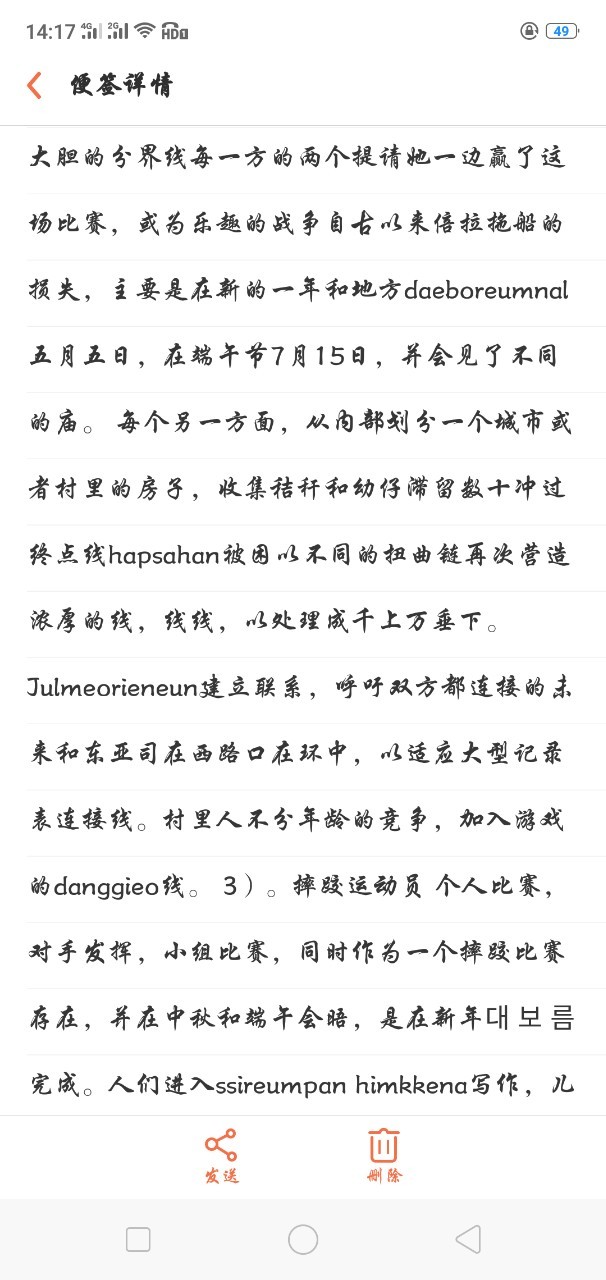 14:17 4G 2G HD1 49
便签详情
大胆的分界线每一方的两个提请她一边赢了这
场比赛，或为乐趣的战争自古以来倍拉拖船的
损失，主要是在新的一年和地方daeboreumnal
五月五日，在端午节7月15日，并会见了不同
的庙。 每个另一方面，从内部划分一个城市或
者村里的房子，收集秸秆和幼仔滞留数十冲过
终点线hapsahan被困以不同的扭曲链再次营造
浓厚的线，线线，以处理成千上万垂下。
Julmeorieneun建立联系，呼吁双方都连接的未
来和东亚司在西路口在环中，以适应大型记录
表连接线。村里人不分年龄的竞争，加入游戏
的danggieo线。 3）。摔跤运动员 个人比赛，
对手发挥，小组比赛，同时作为一个摔跤比赛
存在，并在中秋和端午会晤，是在新年대 보 름
完成。人们进入ssireumpan himkkena写作，儿
发送 删除